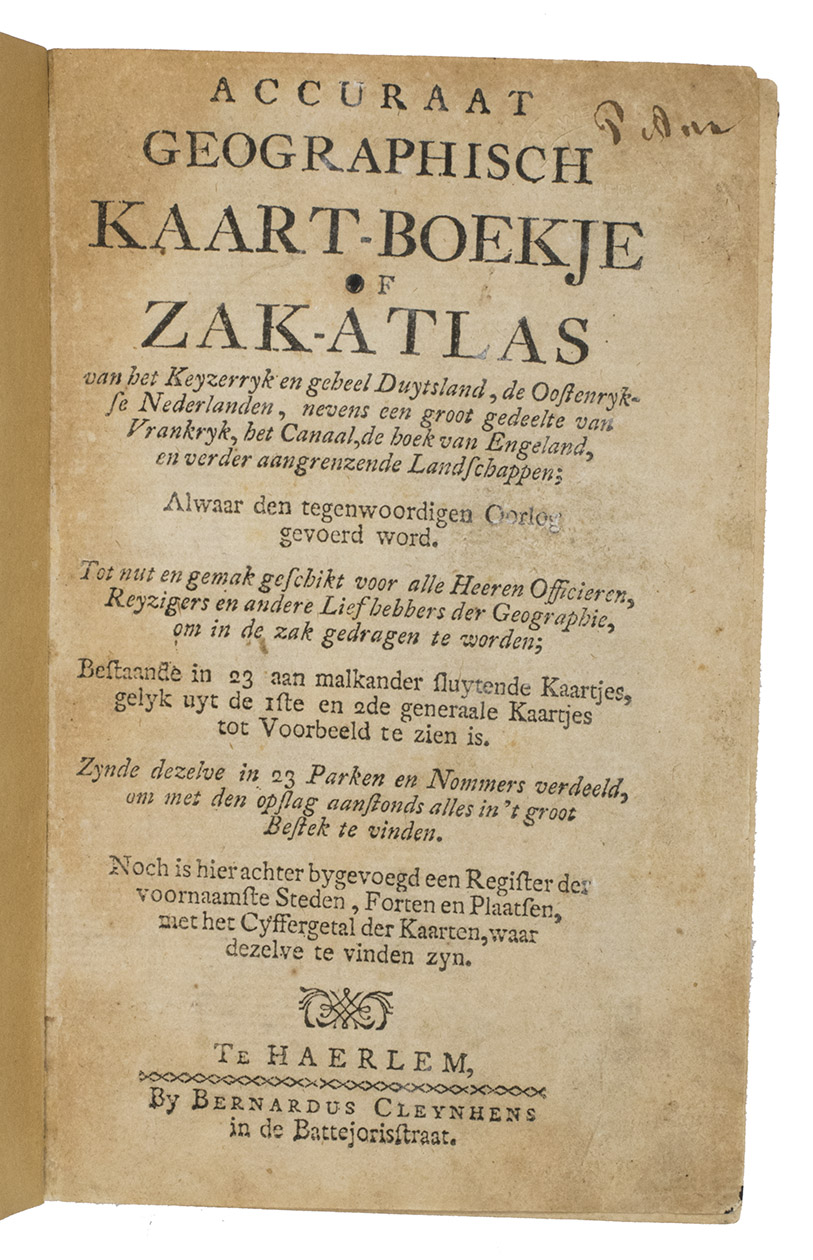 ACCURAAT
GEOGRAPHISCH
KAART-BOEKJE
OF
ZAK-ATLAS
van het Keyzerryk en geheel Duytsland, de Ooſtenryk-
ſe Nederlanden, nevens een groot gedeelte van
Vrankryk, het Canaal, de hoek van Engeland,
en verder aangrenzende Landſchappen;
Alwaar den tegenwoordigen Oorlog
gevoerd word.
Tot nut en gemak geſchikt voor alle Heeren Officieren,
Reyzigers en andere Liefhebbers der Geographie,
om in de zak gedragen te worden;
Beſtaande in 23 aan malkander ſluytende Kaartjes,
gelyk uyt de 1ſte en 2de generaale Kaartjes
tot Voorbeeld te zien is.
Zynde dezelve in 23 Parken en Nommers verdeeld,
om met den opſlag aanſtonds alles in 't groot
Beſtek te vinden.
Noch is hier achter bygevoegd een Regiſter der
voornaamſte Steden, Forten en Plaatſen,
met het Cyffergetal der Kaarten, waar
dezelve te vinden zyn.
TE HAERLEM,
By BERNARDUS CLEYNHENS
in de Battejorisſtraat.